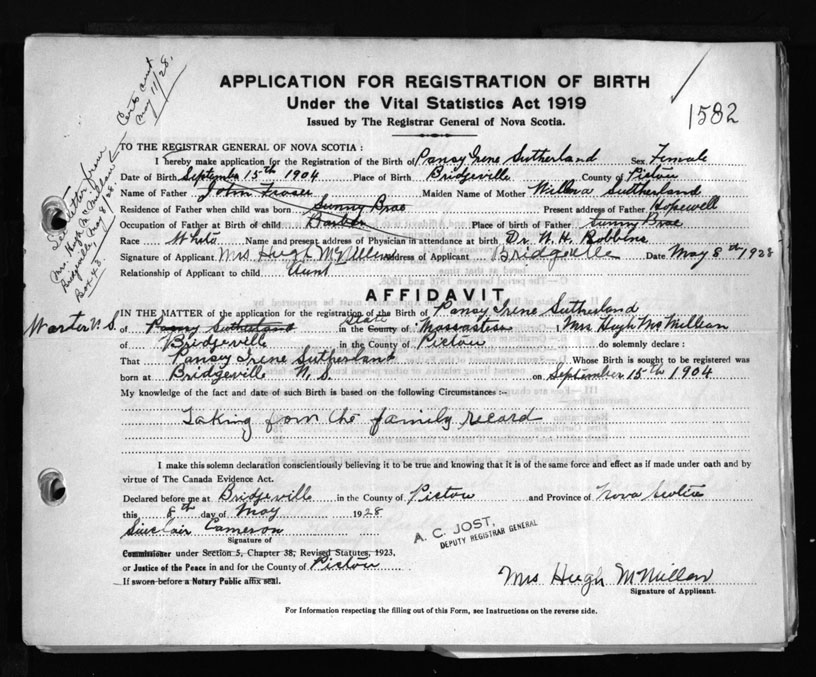 Certs sent
May 11/28.
APPLICATION FOR REGISTRATION OF BIRTH
Under the Vital Statistics Act 1919
Issued by The Registrar General of Nova Scotia.
1582
See letter from
Mrs. Hugh McMillan
Bridgeville May 8/28
Box 43
TO THE REGISTRAR GENERAL OF NOVA SCOTIA:
I hereby make application for the Registration of the Birth of Pansy Irene Sutherland Sex Female
Date of Birth September 15th 1904 Place of Birth Bridgeville County of Pictou
Name of Father John Fraser Maiden Name of Mother Willena Sutherland
Residence of Father when child was born Sunny Brae Present address of Father Hopewell
Occupation of Father at Birth of child Barber Place of birth of Father Sunny Brae
Race White Name and present address of Physician in attendance at birth Dr. W. H. Robbins
Signature of Applicant Mrs Hugh McMillan Address of Applicant Bridgeville Date May 8th 1928
Relationship of Applicant to child Aunt
AFFIDAVIT
IN THE MATTER of the application for the registration of the Birth of Pansy Irene Sutherland
of Pansy Sutherland in the County of State Massastess I, Mrs Hugh McMillan
of Bridgeville in the County of Pictou do solemnly declare:
That Pansy Irene Sutherland Whose Birth is sought to be registered was
born at Bridgeville N. S. on September 15th 1904
My knowledge of the fact and date of such Birth is based on the following Circumstances:-
Taking from the family record
I make this solemn declaration conscientiously believing it to be true and knowing that it is of the same force and effect as if made under oath and by
virtue of The Canada Evidence Act.
Declared before me at Bridgeville in the County of Pictou and Province of Nova Scotia
this 8th day of May 1928
Sinclair Cameron
Signature of
A. C. JOST,
DEPUTY REGISTRAR GENERAL
Commissioner under Section 5, Chapter 38, Revised Statutes, 1923,
or Justice of the Peace in and for the County of Pictou
If sworn before a Notary Public affix seal.
Mrs Hugh McMillan
Signature of Applicant.
For Information respecting the filling out of this Form, see Instructions on the reverse side.